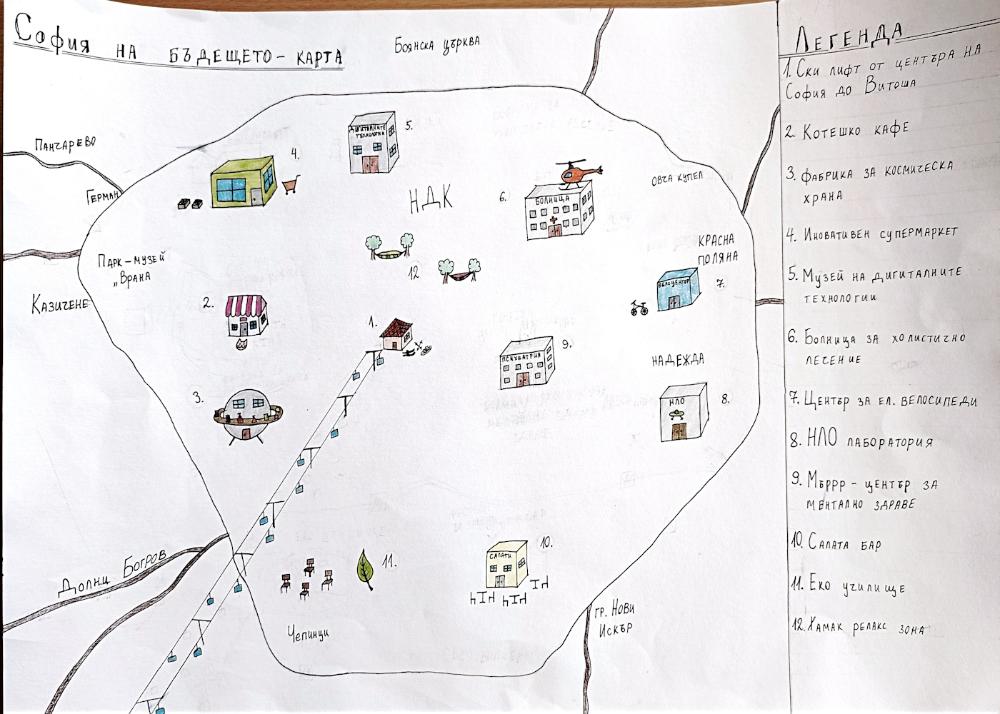 София на бъдещето - карта
Боянска църква
Панчарево
Герман
Парк - музей
„Врана
Казичене
4.
Дигиталните
технологии
5.
НДК
6.
Болница
Овча купел
Красна
поляна
12
2.
1.
Велоцентър
7.
3.
Психиатрия
9.
Надежда
НЛО
8.
Долни Богров
11.
Салати
10.
Чепинци
гр. Нови
Искър
Легенда
1. Ски лифт от центъра на
София до Витоша
2. Котешко кафе
3. Фабрика за космическа
храна
4. Иновативен супермаркет
5. Музей на дигиталните
технологии
6. Болница за холистично
лесение
7. Център за ел. велосипеди
8. НЛО лаборатория
9. Мъррр - център за
ментално здраве
10. Салата бар
11. Еко училище
12. Хамак релакс зона